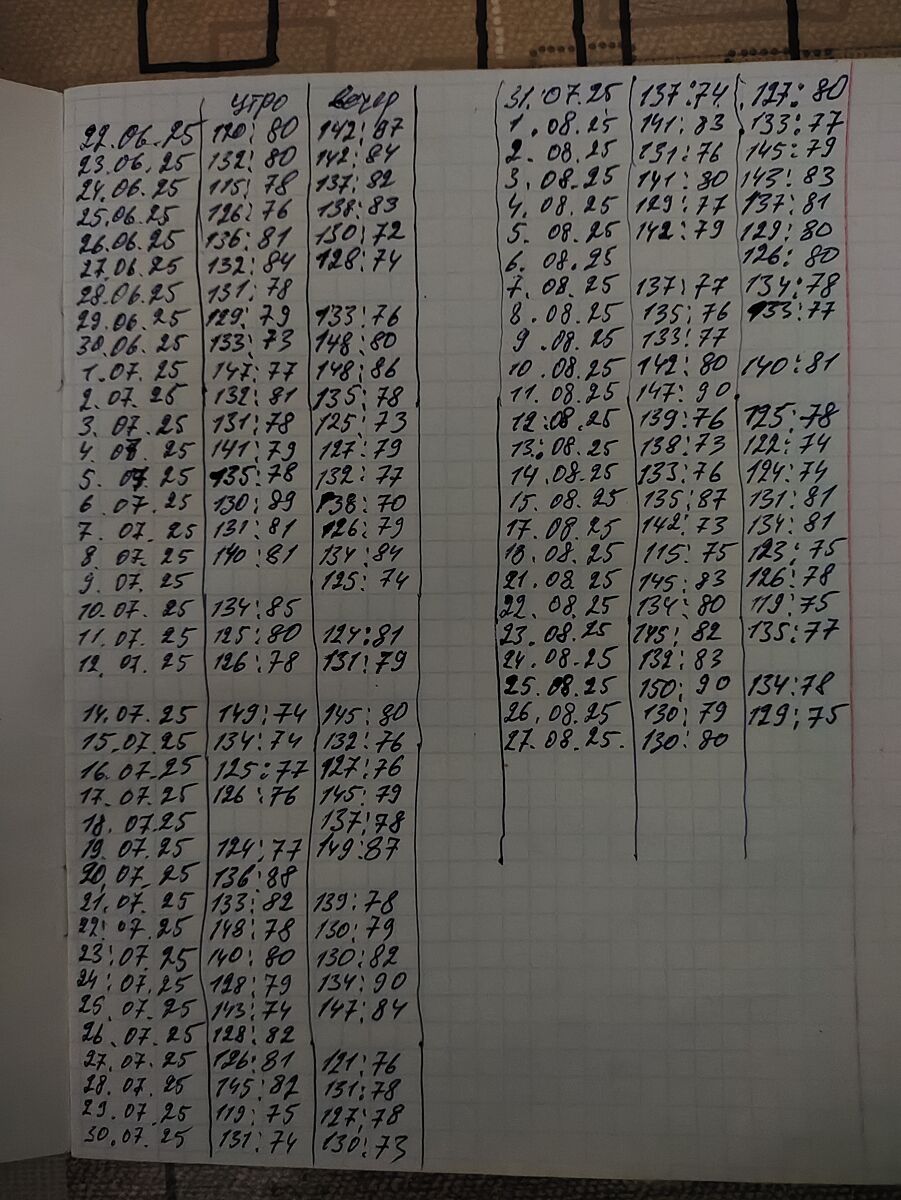 утро вечер
22.06.25 120:80 142:97
23.06.25 132:80 142:84
24.06.25 115:78 137:82
25.06.25 126:76 138:83
26.06.25 136:81 130:72
27.06.25 132:84 128:74
28.06.25 131:78
29.06.25 129:79 133:76
30.06.25 133:73 148:80
1.07.25 147:77 148:86
2.07.25 132:81 135:78
3.07.25 131:78 125:73
4.07.25 141:79 127:79
5.07.25 135:78 132:77
6.07.25 130:89 138:70
7.07.25 131:81 126:79
8.07.25 140:81 134:84
9.07.25 125:74
10.07.25 134:85
11.07.25 125:80 124:81
12.07.25 126:78 131:79
14.07.25 149:74 145:80
15.07.25 134:74 132:76
16.07.25 125:77 127:76
17.07.25 126:76 145:79
18.07.25 137:78
19.07.25 124:77 149:87
20.07.25 136:88
21.07.25 133:82 139:78
22.07.25 148:78 130:79
23.07.25 140:80 130:82
24.07.25 128:79 134:90
25.07.25 143:74 147:84
26.07.25 128:82
27.07.25 126:81 121:76
28.07.25 145:82 131:78
29.07.25 119:75 127:78
30.07.25 131:74 130:73
31.07.25 137:74 127:80
1.08.25 141:83 133:77
2.08.25 131:76 145:79
3.08.25 141:80 143:83
4.08.25 129:77 137:81
5.08.25 142:79 129:80
6.08.25 126:80
7.08.25 137:77 134:78
8.08.25 135:76 133:77
9.08.25 133:77
10.08.25 142:80 140:81
11.08.25 147:90
12.08.25 139:76 125:78
13.08.25 138:73 122:74
14.08.25 133:76 124:74
15.08.25 135:87 131:81
17.08.25 142:73 134:81
18.08.25 115:75 123:75
21.08.25 145:83 126:78
22.08.25 134:80 119:75
23.08.25 145:82 135:77
24.08.25 132:83
25.08.25 150:90 134:78
26.08.25 130:79 129:75
27.08.25. 130:80